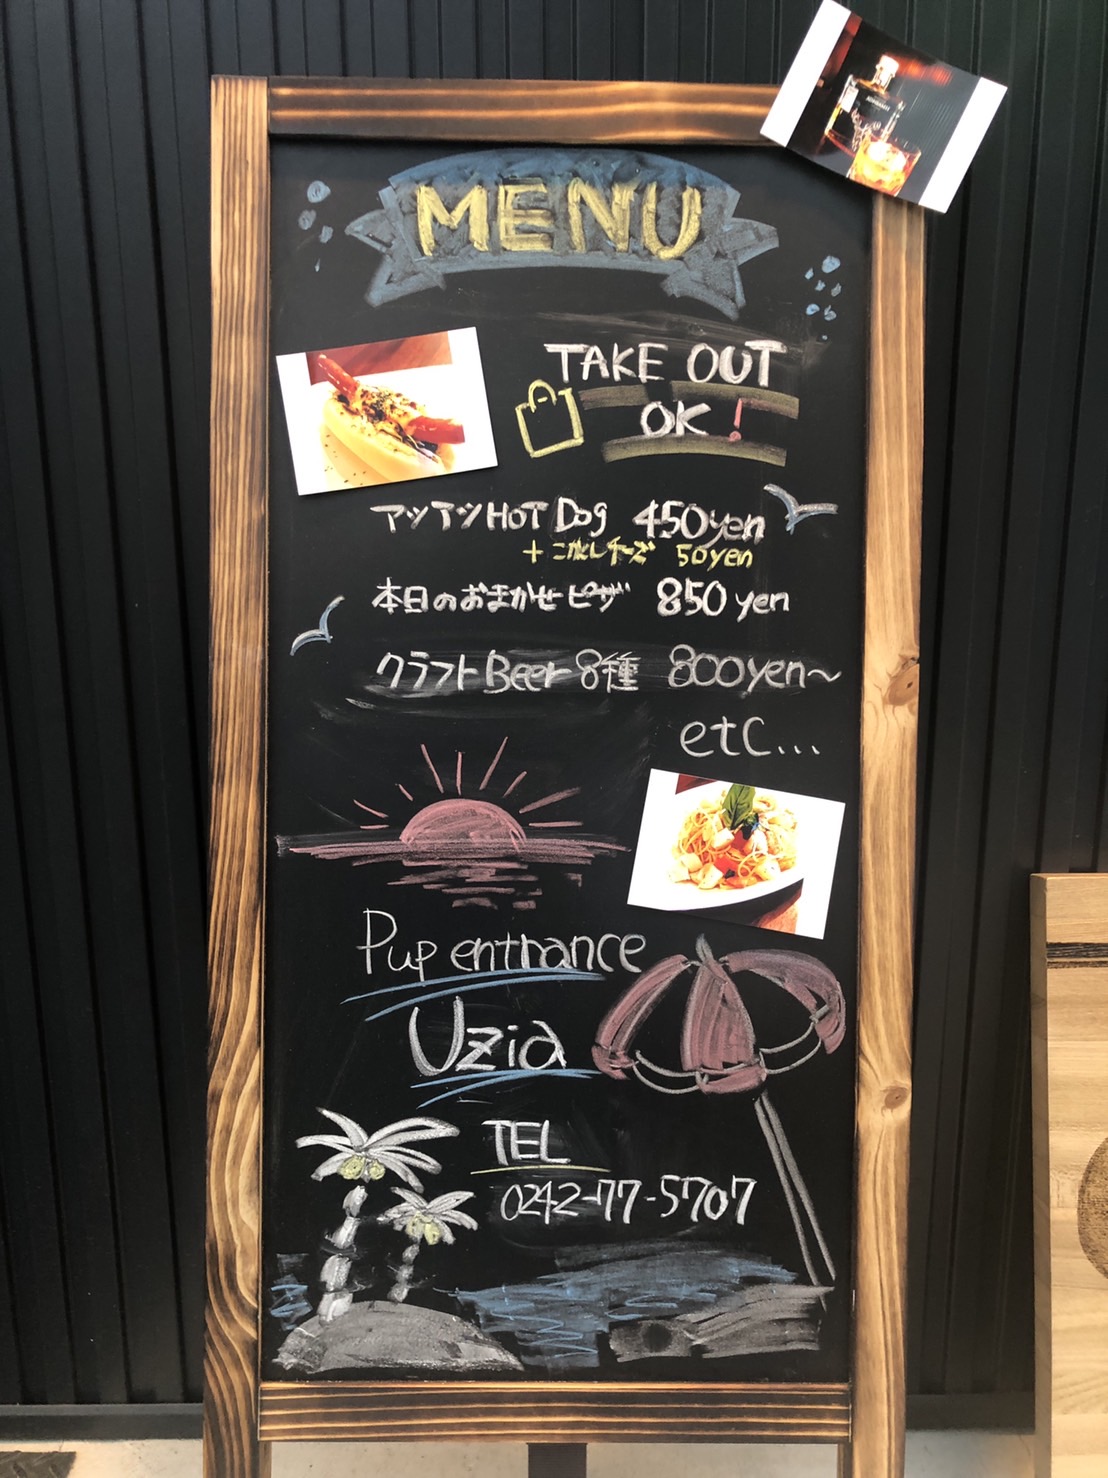 MENU
TAKE OUT
OK!
アツアツHOT Dog 450yen
+こがしチーズ 50yen
本日のおまかせピザ 850yen
クラフトBeer8種 800yen~
etc...
Pup entrance
Uzia
TEL
0242-77-5707